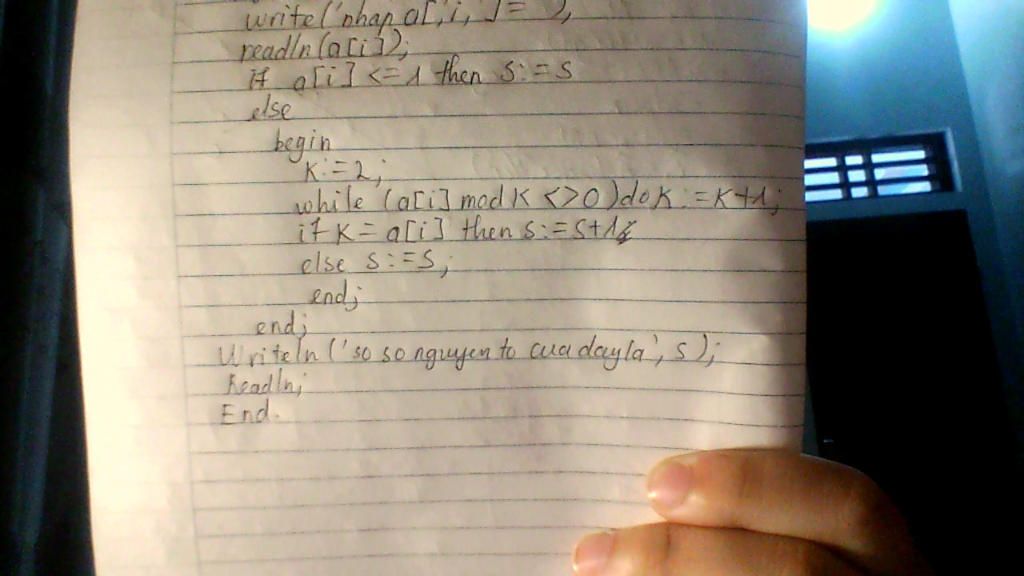 write('nhap a[',i,']= ');
readln(a[i]);
if a[i] <=1 then s:=s
else
begin
k:=2;
while (a[i] mod k <>0) do k:=k+1;
if k= a[i] then s:=s+1
else s:=s;
end;
end;
Writeln ('so so nguyen to cua day la', s);
Readln;
End.